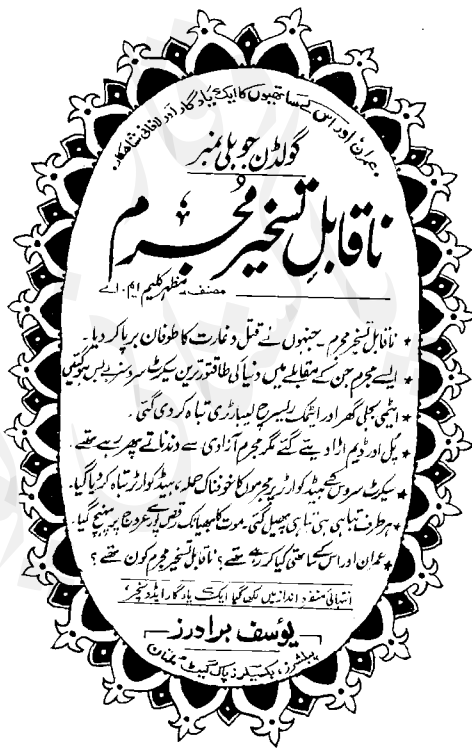 عمران اور اس کے ساتھیوں کا ایک یادگار اور لافانی شاہکار
گولڈن جوبلی نمبر
ناقابلِ تسخیر مُجرم
مصنف۔ مظہر کلیم ایم۔اے
* ناقابل تسخیر مجرم۔ جنہوں نے قتل و غارت کا طوفان برپا کر دیا۔
* ایسے مجرم جن کے مقابلے میں دنیا کی طاقتور ترین سیکرٹ سروسز بے بس ہو گئیں
* ایٹمی بجلی گھر اور اٹیمک ریسرچ لیبارٹری تباہ کر دی گئی۔
* پل اور ڈیم اڑا دیئے گئے مگر مجرم آزادی سے دندناتے پھر رہے تھے۔
* سیکرٹ سروس کے ہیڈ کوارٹر پر مجرموں کا خوفناک حملہ، ہیڈ کوارٹر تباہ کر دیا گیا۔
* ہر طرف تباہی ہی تباہی پھیل گئی۔ موت کا بھیانک رقص پورے عروج پر پہنچ گیا۔
* عمران اور اس کے ساتھی کیا کر رہے تھے؟ ناقابل تسخیر مجرم کون تھے؟
انتہائی منفرد انداز میں لکھا گیا ایک یادگار ایڈونچر،
یوسف برادرز
پبلشرز، بکسیلرز پاک گیٹ ملتان